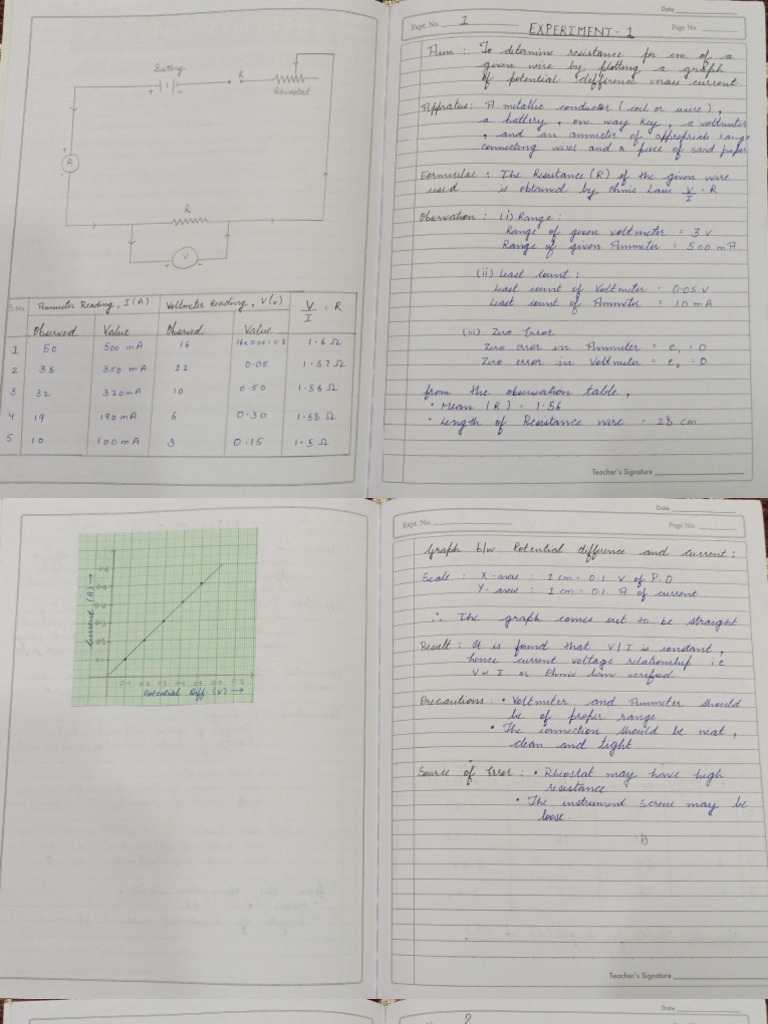 Battery
K
Rheostat
A
R
V
S.No. Ammeter Reading, I(A) Voltmeter Reading, V(v) V/I = R
Observed Value Observed Value
1 50 500 mA 16 16x0.05=0.8 1.6 Ω
2 35 350 mA 11 0.05 1.57 Ω
3 32 320mA 10 0.50 1.56 Ω
4 19 190mA 6 0.30 1.58 Ω
5 10 100mA 3 0.15 1.5 Ω
Date
Expt. No. 1 Page No.
EXPERIMENT - 1
Aim : To determine resistance per cm of a
given wire by plotting a graph
of potential defference versus current
Appratus: A metallic conductor (coil or wire),
a battery, one way key, a voltmeter
, and an ammeter of appropriate range
connecting wires and a piece of sand paper
Formulae : The Resistance (R) of the given wire
used is obtained by Ohm's Law V/I = R
Observation : (i) Range :
Range of given voltmeter = 3 v
Range of given Ammeter = 500 mA
(ii) Least count :
Least count of Voltmeter = 0.05 V
Least count of Ammeter = 10 mA
(iii) Zero Error
Zero error in Ammeter = e, = 0
Zero error in Voltmeter = e, = 0
from the observation table,
• Mean (R) = 1.56
• Length of Resistance wire = 28 cm
Teacher's Signature
Date
Expt. No. Page No.
Graph b/w Potential difference and current :
Scale : X-axis : 1 cm = 0.1 V of P.D
Y-axis : 1 cm = 0.1 A of current
∴ The graph comes out to be straight
Result : It is found that V/I is constant,
hence current voltage relationship i.e
V ∝ I or Ohm's law verified
Precautions : • Voltmeter and Ammeter should
be of proper range
• The connection should be neat,
clean and tight
Source of Error : • Rheostat may have high
resistance
• The instrument screw may be
loose.
Current (A) →
Potential Diff (V) →
Teacher's Signature
Date
2